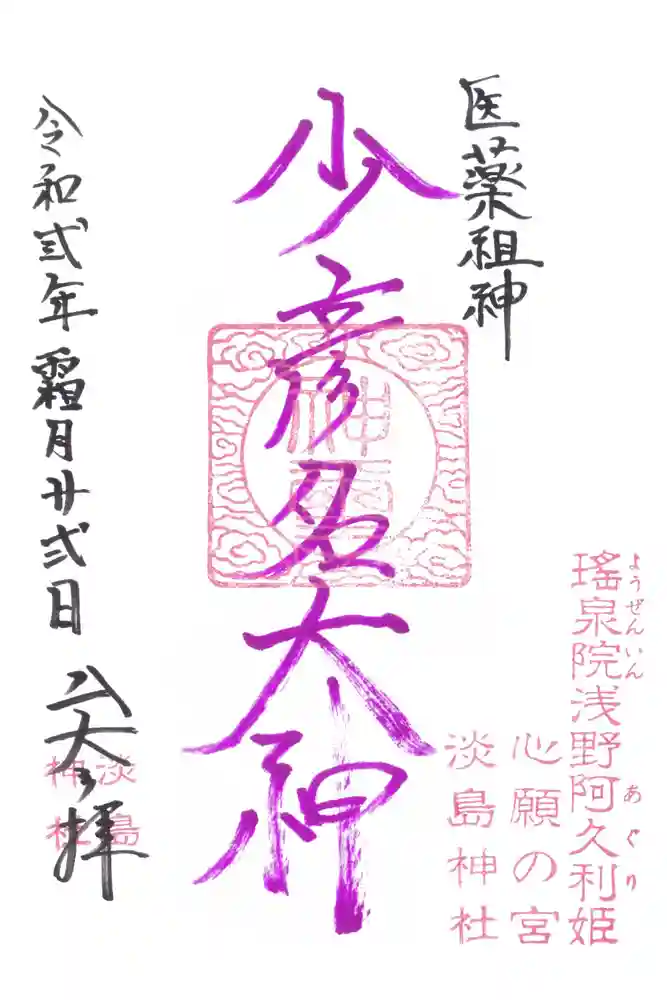 医薬祖神
少彦名大神
令和弐年 霜月廿弐日 六大〻拝
瑤泉院浅野阿久利姫
ようぜんいん
あぐり
心願の宮
淡島神社
神霊
淡島
神社